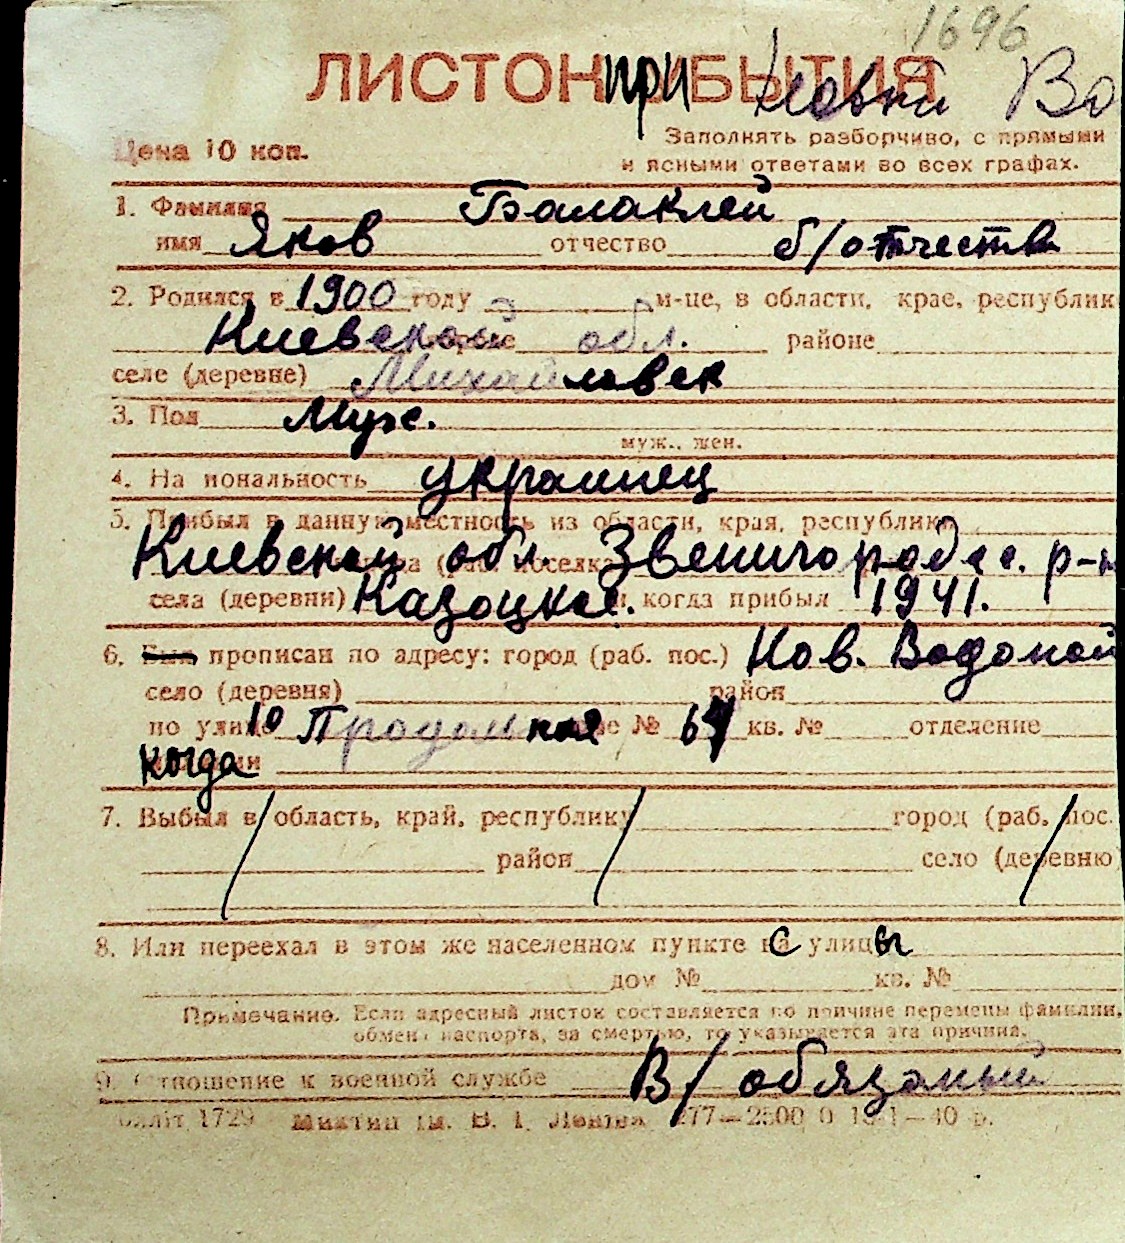 1696
ЛИСТОК ПРИБЫТИЯ Новый Во
Цена 10 коп.
Заполнять разборчиво, с прямыми
и ясными ответами во всех графах.
1. Фамилия Балаклей
имя Яков отчество б/отчества
2. Родился в 1900 году м-це, в области, крае, республик
Киевской обл. районе
селе (деревне) Михайловск
3. Пол Муж.
муж., жен.
4. На иональность украинец
5. Прибыл в данную местность из области, края, республики
Киевской обл. Звенигородс. р-н
села (деревни) Казацкое. и когда прибыл 1941.
6. Был прописан по адресу: город (раб. пос.) Нов. Водолой
село (деревня) район
по улице 10 Продольная № 64 кв. № отделение
когда
7. Выбыл в область, край, республику город (раб. пос.
район село (деревню)
8. Или переехал в этом же населенном пункте с улицы
дом № кв. №
Примечание. Если адресный листок составляется по причине перемены фамилии,
обмена паспорта, за смертью, то указывается эта причина.
9. Отношение к военной службе В/обязаный
1729 ім. В. І. Леніна 277—2500 0 —40 р.